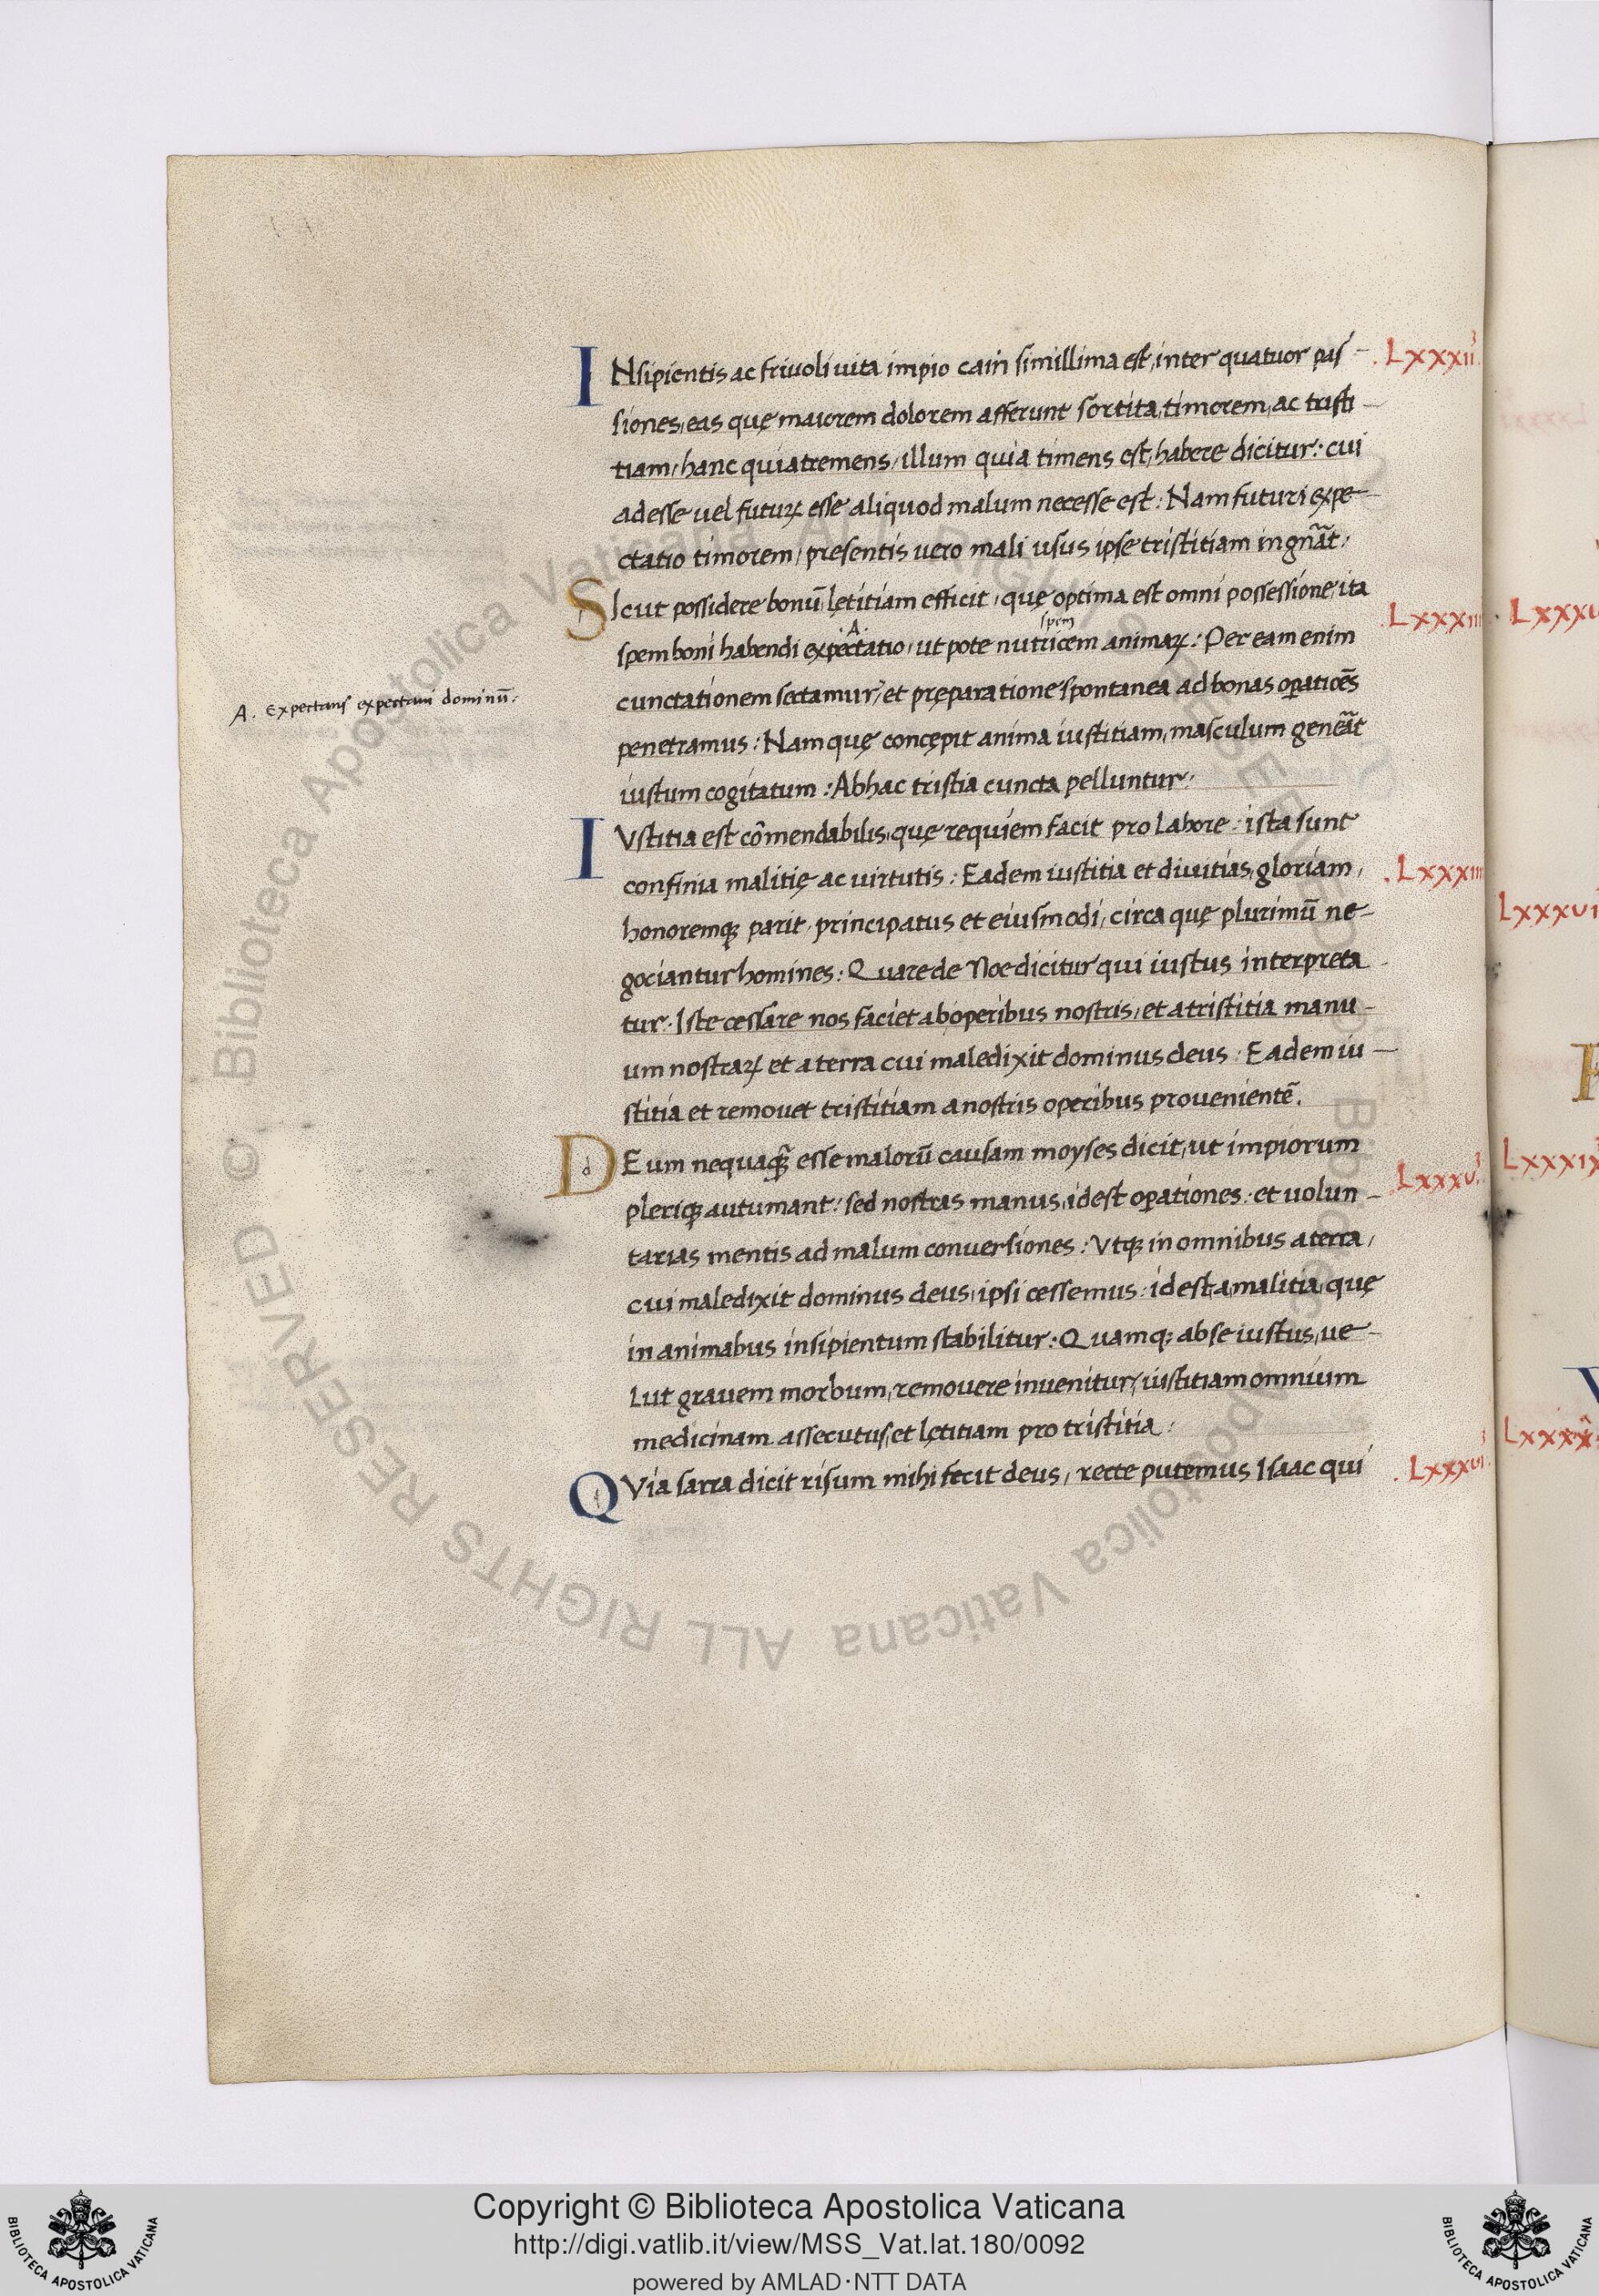 INsipientis ac friuoli uita impio cain simillima est, inter quatuor pas- .Lxxxii.
siones, eas quę maiorem dolorem afferunt sortita, timorem, ac tristi-
tiam, hanc quia tremens, illum quia timens est, habere dicitur: cui
adesse uel futurꝝ esse aliquod malum necesse est: Nam futuri expe-
ctatio timorem, presentis uero mali usus ipse tristitiam ingn̄at.
SIcut possidere bonū lętitiam efficit, quę optima est omni possessione, ita .Lxxxiii
.A. spem
spem boni habendi expectatio, ut pote nutricem animaꝝ: Per eam enim
cunctationem sectamur, et pręparatione spontanea ad bonas oꝑatiōēs
A. Expectans expectaui dominū.
penetramus: Namquę concępit anima iustitiam, masculum genēat
iustum cogitatum: Ab hac tristia cuncta pelluntur.
IVstitia est cōmendabilis, quę requiem facit pro labore: ista sunt
confinia malitię ac uirtutis: Eadem iustitia et diuitias, gloriam, .Lxxxiiii
honoremqꝫ parit, principatus et eiusmodi, circa quę plurimū ne-
gociantur homines: Quare de Noe dicitur qui iustus interpreta
tur. Iste cessare nos faciet ab operibus nostris, et a tristitia manu-
um nostraꝝ et a terra cui maledixit dominus deus: Eadem iu-
stitia et remouet tristitiam a nostris operibus prouenientē.
DEum nequaqꝫ̄ esse malorū causam moyses dicit, ut impiorum .Lxxxv.
pleriqꝫ autumant: sed nostras manus, idest oꝑationes: et uolun-
tarias mentis ad malum conuersiones: Vtqꝫ in omnibus a terra,
cui maledixit dominus deus, ipsi cessemus: idest, a malitia, quę
in animabus insipientum stabilitur: Quamqꝫ ab se iustus, ue-
lut grauem morbum, remouere inuenitur, iustitiam omnium
medicinam assecutus, et lętitiam pro tristitia:
QVia sarra dicit risum mihi fecit deus, recte putemus Isaac qui .Lxxxvi.
Lxxxvi
Lxxxix
Copyright © Biblioteca Apostolica Vaticana
http://digi.vatlib.it/view/MSS_Vat.lat.180/0092
powered by AMLAD·NTT DATA
BIBLIOTECA APOSTOLICA VATICANA
BIBLIOTECA APOSTOLICA VATICANA
© Biblioteca Apostolica Vaticana ALL RIGHTS RESERVED © Biblioteca Apostolica Vaticana ALL RIGHTS RESERVED